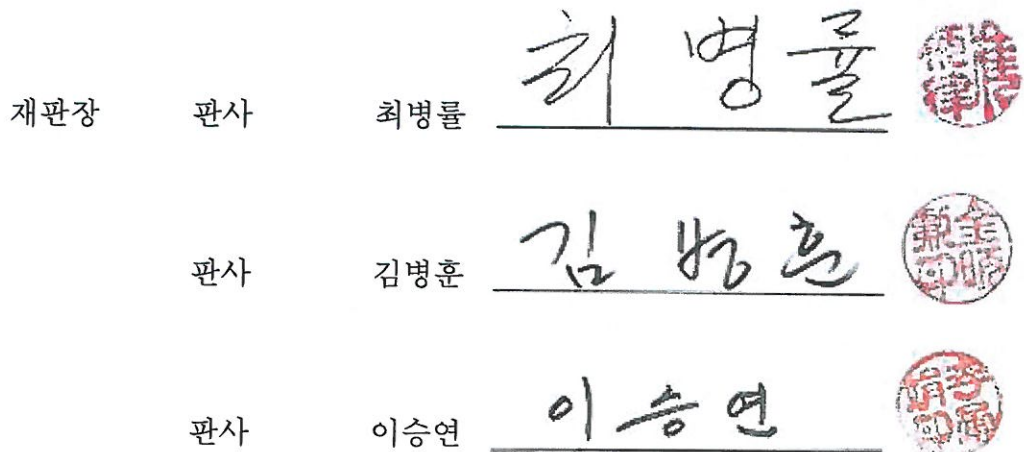 재판장 판사 최병률 최병률
판사 김병훈 김병훈
판사 이승연 이승연